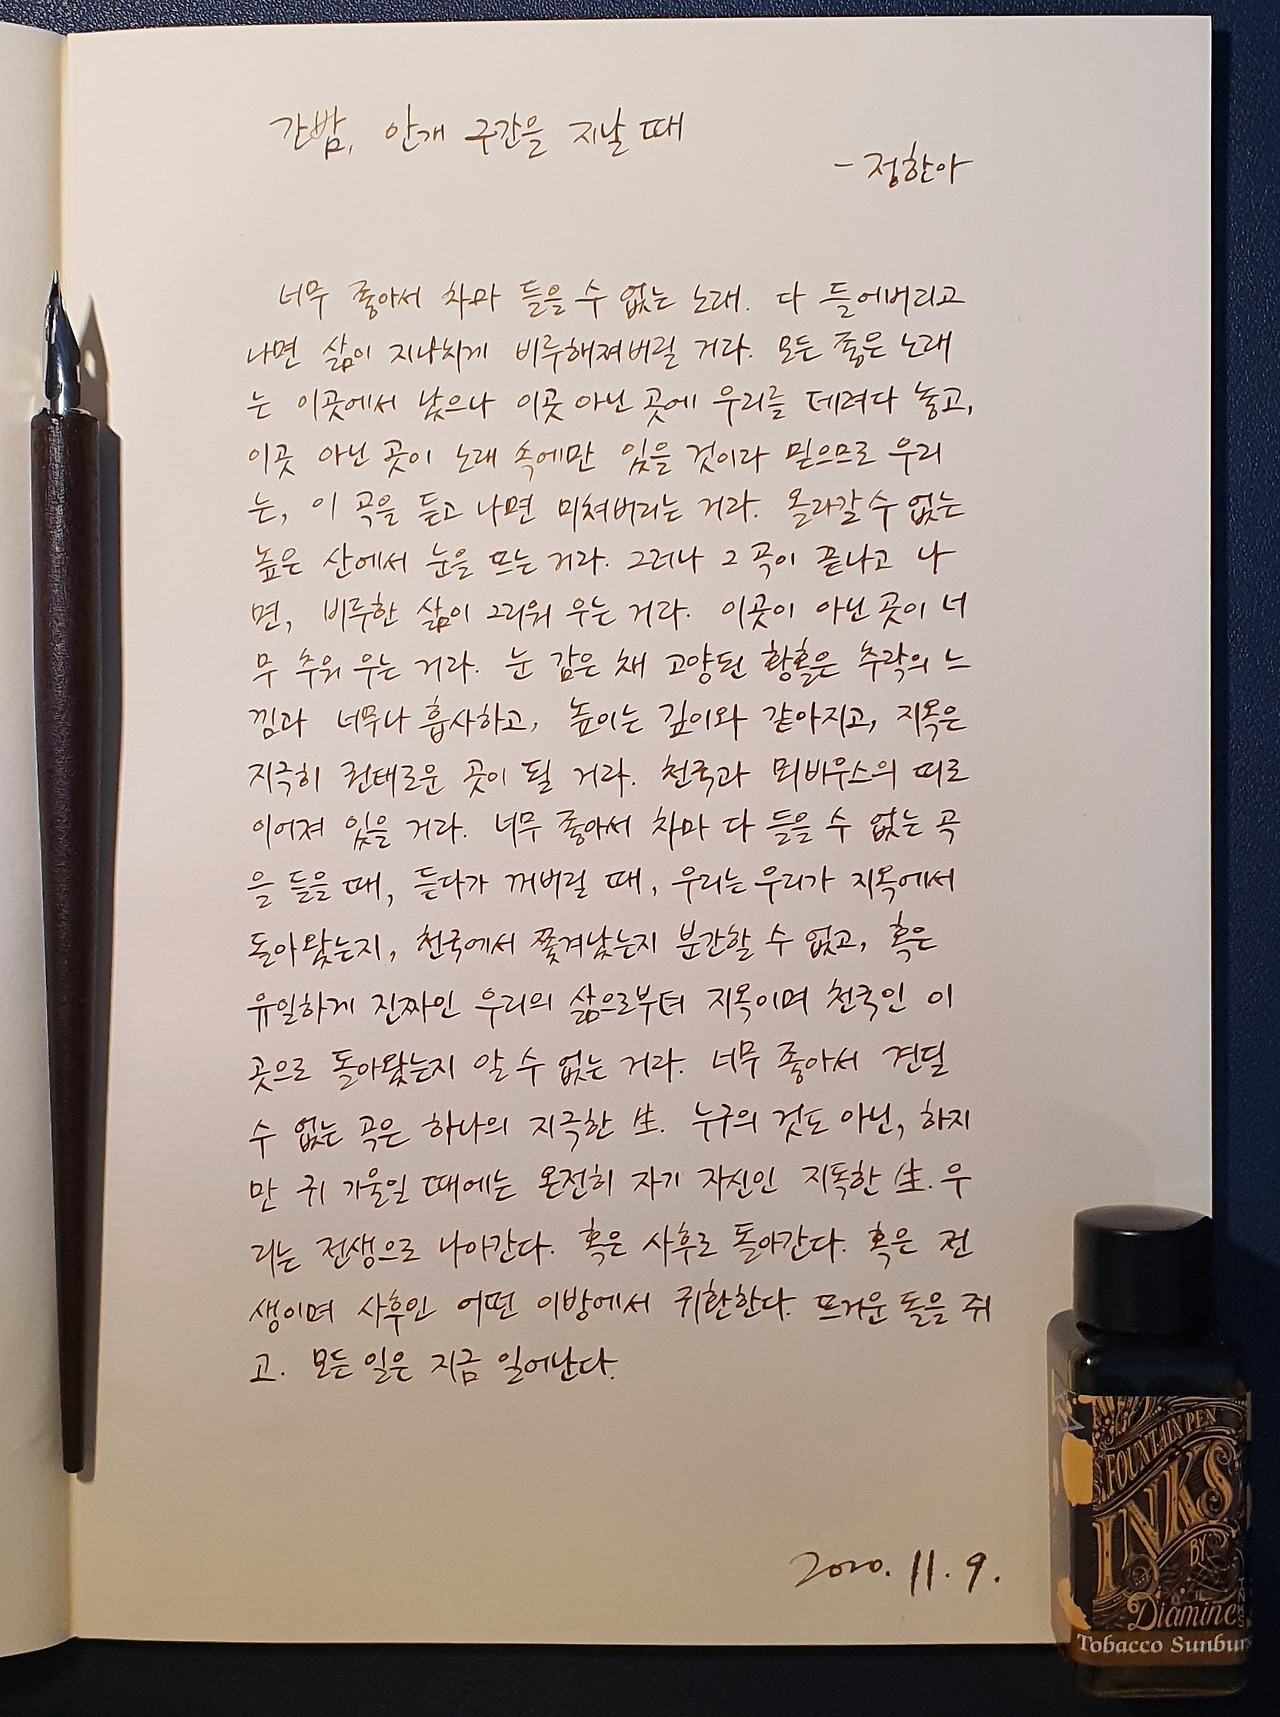 간밤, 안개 구간을 지날 때
- 정한아
너무 좋아서 차마 들을 수 없는 노래. 다 들어버리고
나면 삶이 지나치게 비루해져버릴 거라. 모든 좋은 노래
는 이곳에서 났으나 이곳 아닌 곳에 우리를 데려다 놓고,
이곳 아닌 곳이 노래 속에만 있을 것이라 믿으므로 우리
는, 이 곡을 듣고 나면 미쳐버리는 거라. 올라갈 수 없는
높은 산에서 눈을 뜨는 거라. 그러나 그 곡이 끝나고 나
면, 비루한 삶이 그리워 우는 거라. 이곳이 아닌 곳이 너
무 추워 우는 거라. 눈 감은 채 고양된 황홀은 추락의 느
낌과 너무나 흡사하고, 높이는 깊이와 같아지고, 지옥은
지극히 권태로운 곳이 될 거라. 천국과 뫼비우스의 띠로
이어져 있을 거라. 너무 좋아서 차마 다 들을 수 없는 곡
을 들을 때, 듣다가 꺼버릴 때, 우리는 우리가 지옥에서
돌아왔는지, 천국에서 쫓겨났는지 분간할 수 없고, 혹은
유일하게 진짜인 우리의 삶으로부터 지옥이며 천국인 이
곳으로 돌아왔는지 알 수 없는 거라. 너무 좋아서 견딜
수 없는 곡은 하나의 지극한 生. 누구의 것도 아닌, 하지
만 귀 기울일 때에는 온전히 자기 자신인 지독한 生. 우
리는 전생으로 나아간다. 혹은 사후로 돌아간다. 혹은 전
생이며 사후인 어떤 이방에서 귀환한다. 뜨거운 돌을 쥐
고. 모든 일은 지금 일어난다.
2020. 11. 9.
FOUNTAIN PEN
INKS
BY
Diamine
Tobacco